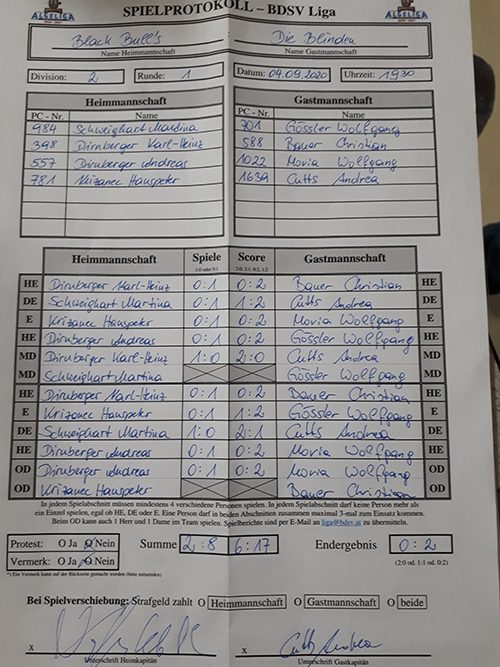 ALSLIGA SPIELPROTOKOLL – BDSV Liga ALSLIGA
Black Bull's : Die Blinden
Name Heimmannschaft Name Gastmannschaft
Division: 2 Runde: 1 Datum: 04.09.2020 Uhrzeit: 19 30
Heimmannschaft Gastmannschaft
PC - Nr. Name PC - Nr. Name
984 Schweighart Martina 701 Gössler Wolfgang
398 Dirnberger Karl-Heinz 588 Bauer Christian
557 Dirnberger Andreas 1022 Movia Wolfgang
781 Krizanec Hauspeter 1639 Cutts Andrea
Heimmannschaft Spiele Score Gastmannschaft
1:0 oder 0:1 2:0, 2:1, 0:2, 1:2
HE Dirnberger Karl-Heinz 0:1 0:2 Bauer Christian HE
DE Schweighart Martina 0:1 1:2 Cutts Andrea DE
E Krizanec Hauspeter 0:1 0:2 Movia Wolfgang E
HE Dirnberger Andreas 0:1 0:2 Gössler Wolfgang HE
MD Dirnberger Karl-Heinz 1:0 2:0 Cutts Andrea MD
MD Schweighart Martina Gössler Wolfgang MD
HE Dirnberger Karl-Heinz 0:1 0:2 Bauer Christian HE
E Krizanec Hauspeter 0:1 1:2 Gössler Wolfgang E
DE Schweighart Martina 1:0 2:1 Cutts Andrea DE
HE Dirnberger Andreas 0:1 0:2 Movia Wolfgang HE
OD Dirnberger Andreas 0:1 0:2 Movia Wolfgang OD
OD Krizanec Hauspeter Bauer Christian OD
In jedem Spielabschnitt müssen mindestens 4 verschiedene Personen spielen. In jedem Spielabschnitt darf keine Person mehr als
ein Einzel spielen, egal ob HE, DE oder E. Eine Person darf in beiden Abschnitten zusammen maximal 3-mal zum Einsatz kommen.
Beim OD kann auch 1 Herr und 1 Dame im Team spielen. Spielberichte sind per E-Mail an liga@bdsv.at zu übermitteln.
Protest: O Ja O Nein Summe 2:8 6:17 Endergebnis 0:2
Vermerk: O Ja O Nein (2:0 od. 1:1 od. 0:2)
*) Ein Vermerk kann auf der Rückseite gemacht werden (bitte mitsenden)
Bei Spielverschiebung: Strafgeld zahlt O Heimmannschaft O Gastmannschaft O beide
x x Cutts Andrea
Unterschrift Heimkapitän Unterschrift Gastkapitän